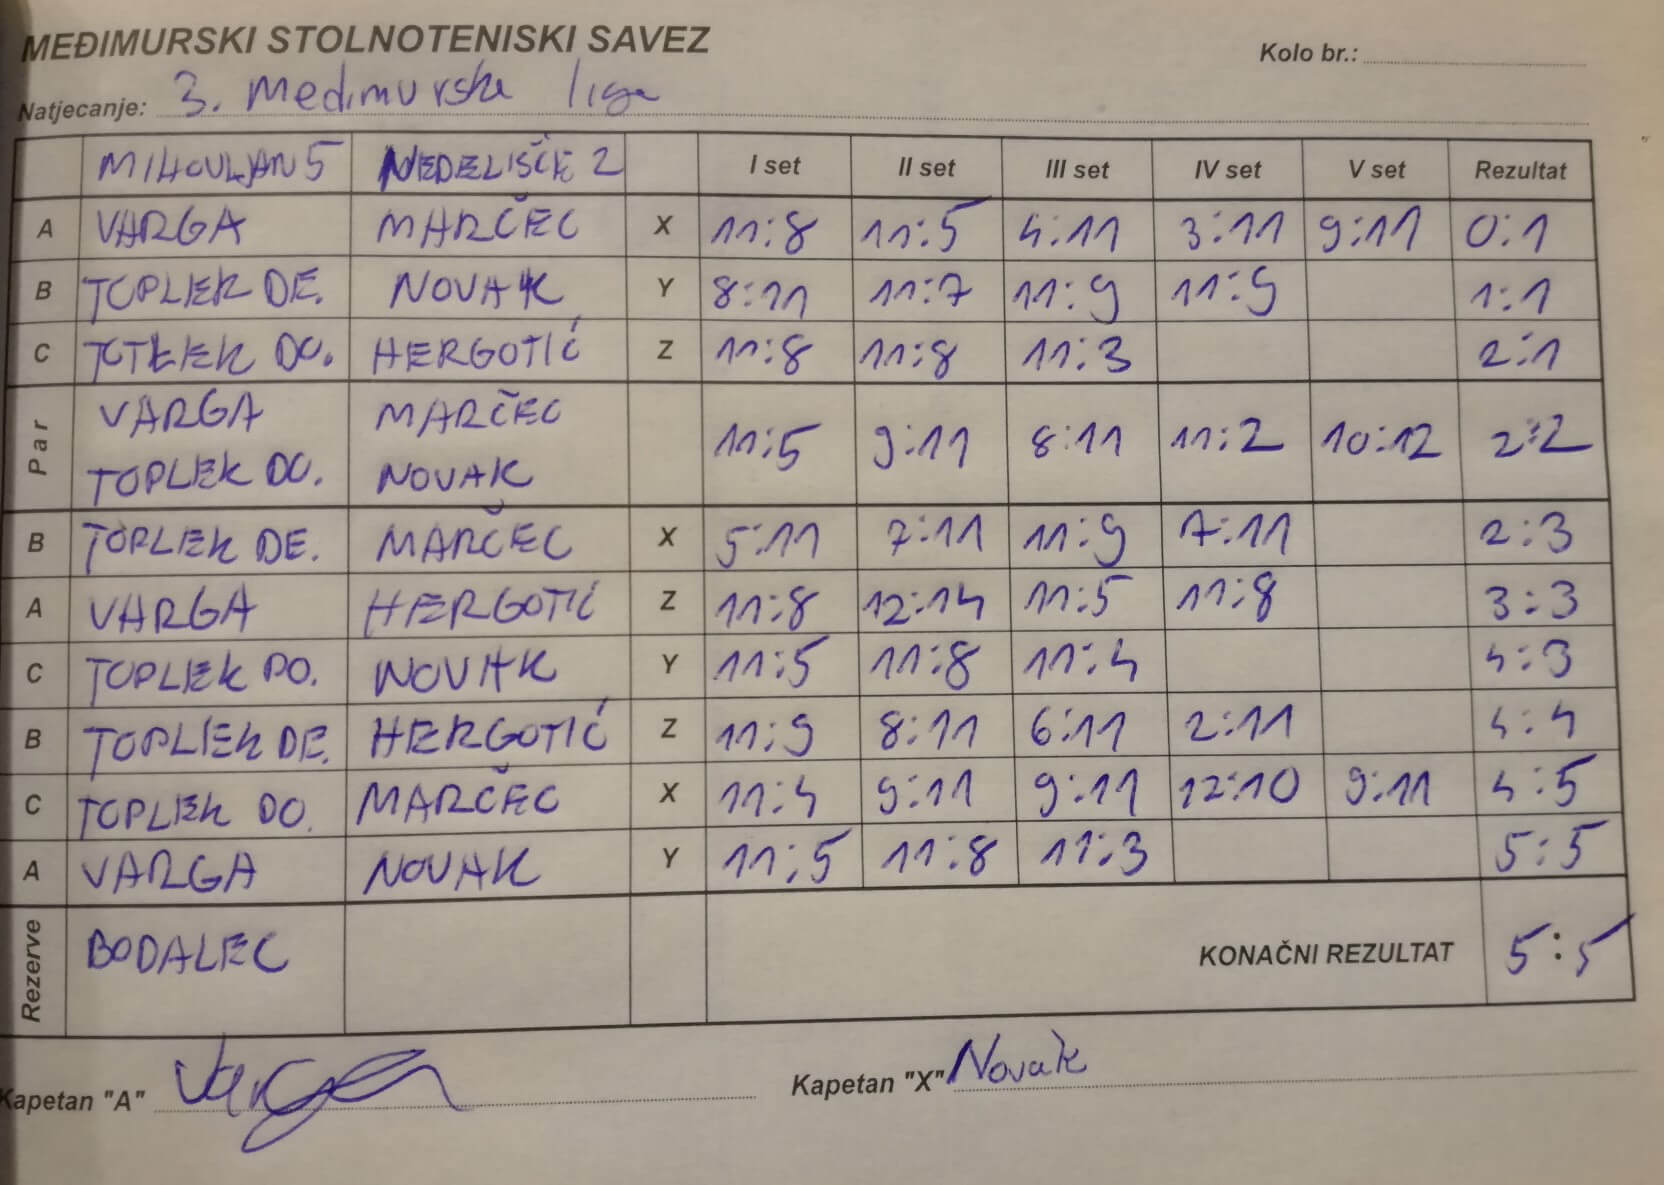 MEĐIMURSKI STOLNOTENISKI SAVEZ
Kolo br.:
Natjecanje: 3. Međimurska liga
MIHOVLJAN 5 NEDELIŠĆE 2 I set II set III set IV set V set Rezultat
A VARGA MARČEC X 11:8 11:5 4:11 3:11 9:11 0:1
B TOPLEK DE. NOVAK Y 8:11 11:7 11:9 11:9 1:1
C TOPLEK DO. HERGOTIĆ Z 11:8 11:8 11:3 2:1
Par VARGA MARČEC 11:5 9:11 8:11 11:2 10:12 2:2
TOPLEK DO. NOVAK
B TOPLEK DE. MARČEC X 5:11 7:11 11:9 7:11 2:3
A VARGA HERGOTIĆ Z 11:8 12:14 11:5 11:8 3:3
C TOPLEK DO. NOVAK Y 11:5 11:8 11:4 4:3
B TOPLEK DE. HERGOTIĆ Z 11:9 8:11 6:11 2:11 4:4
C TOPLEK DO. MARČEC X 11:4 9:11 9:11 12:10 9:11 4:5
A VARGA NOVAK Y 11:5 11:8 11:3 5:5
Rezerve BODALEC KONAČNI REZULTAT 5:5
Kapetan "A" Varga Kapetan "X" Novak